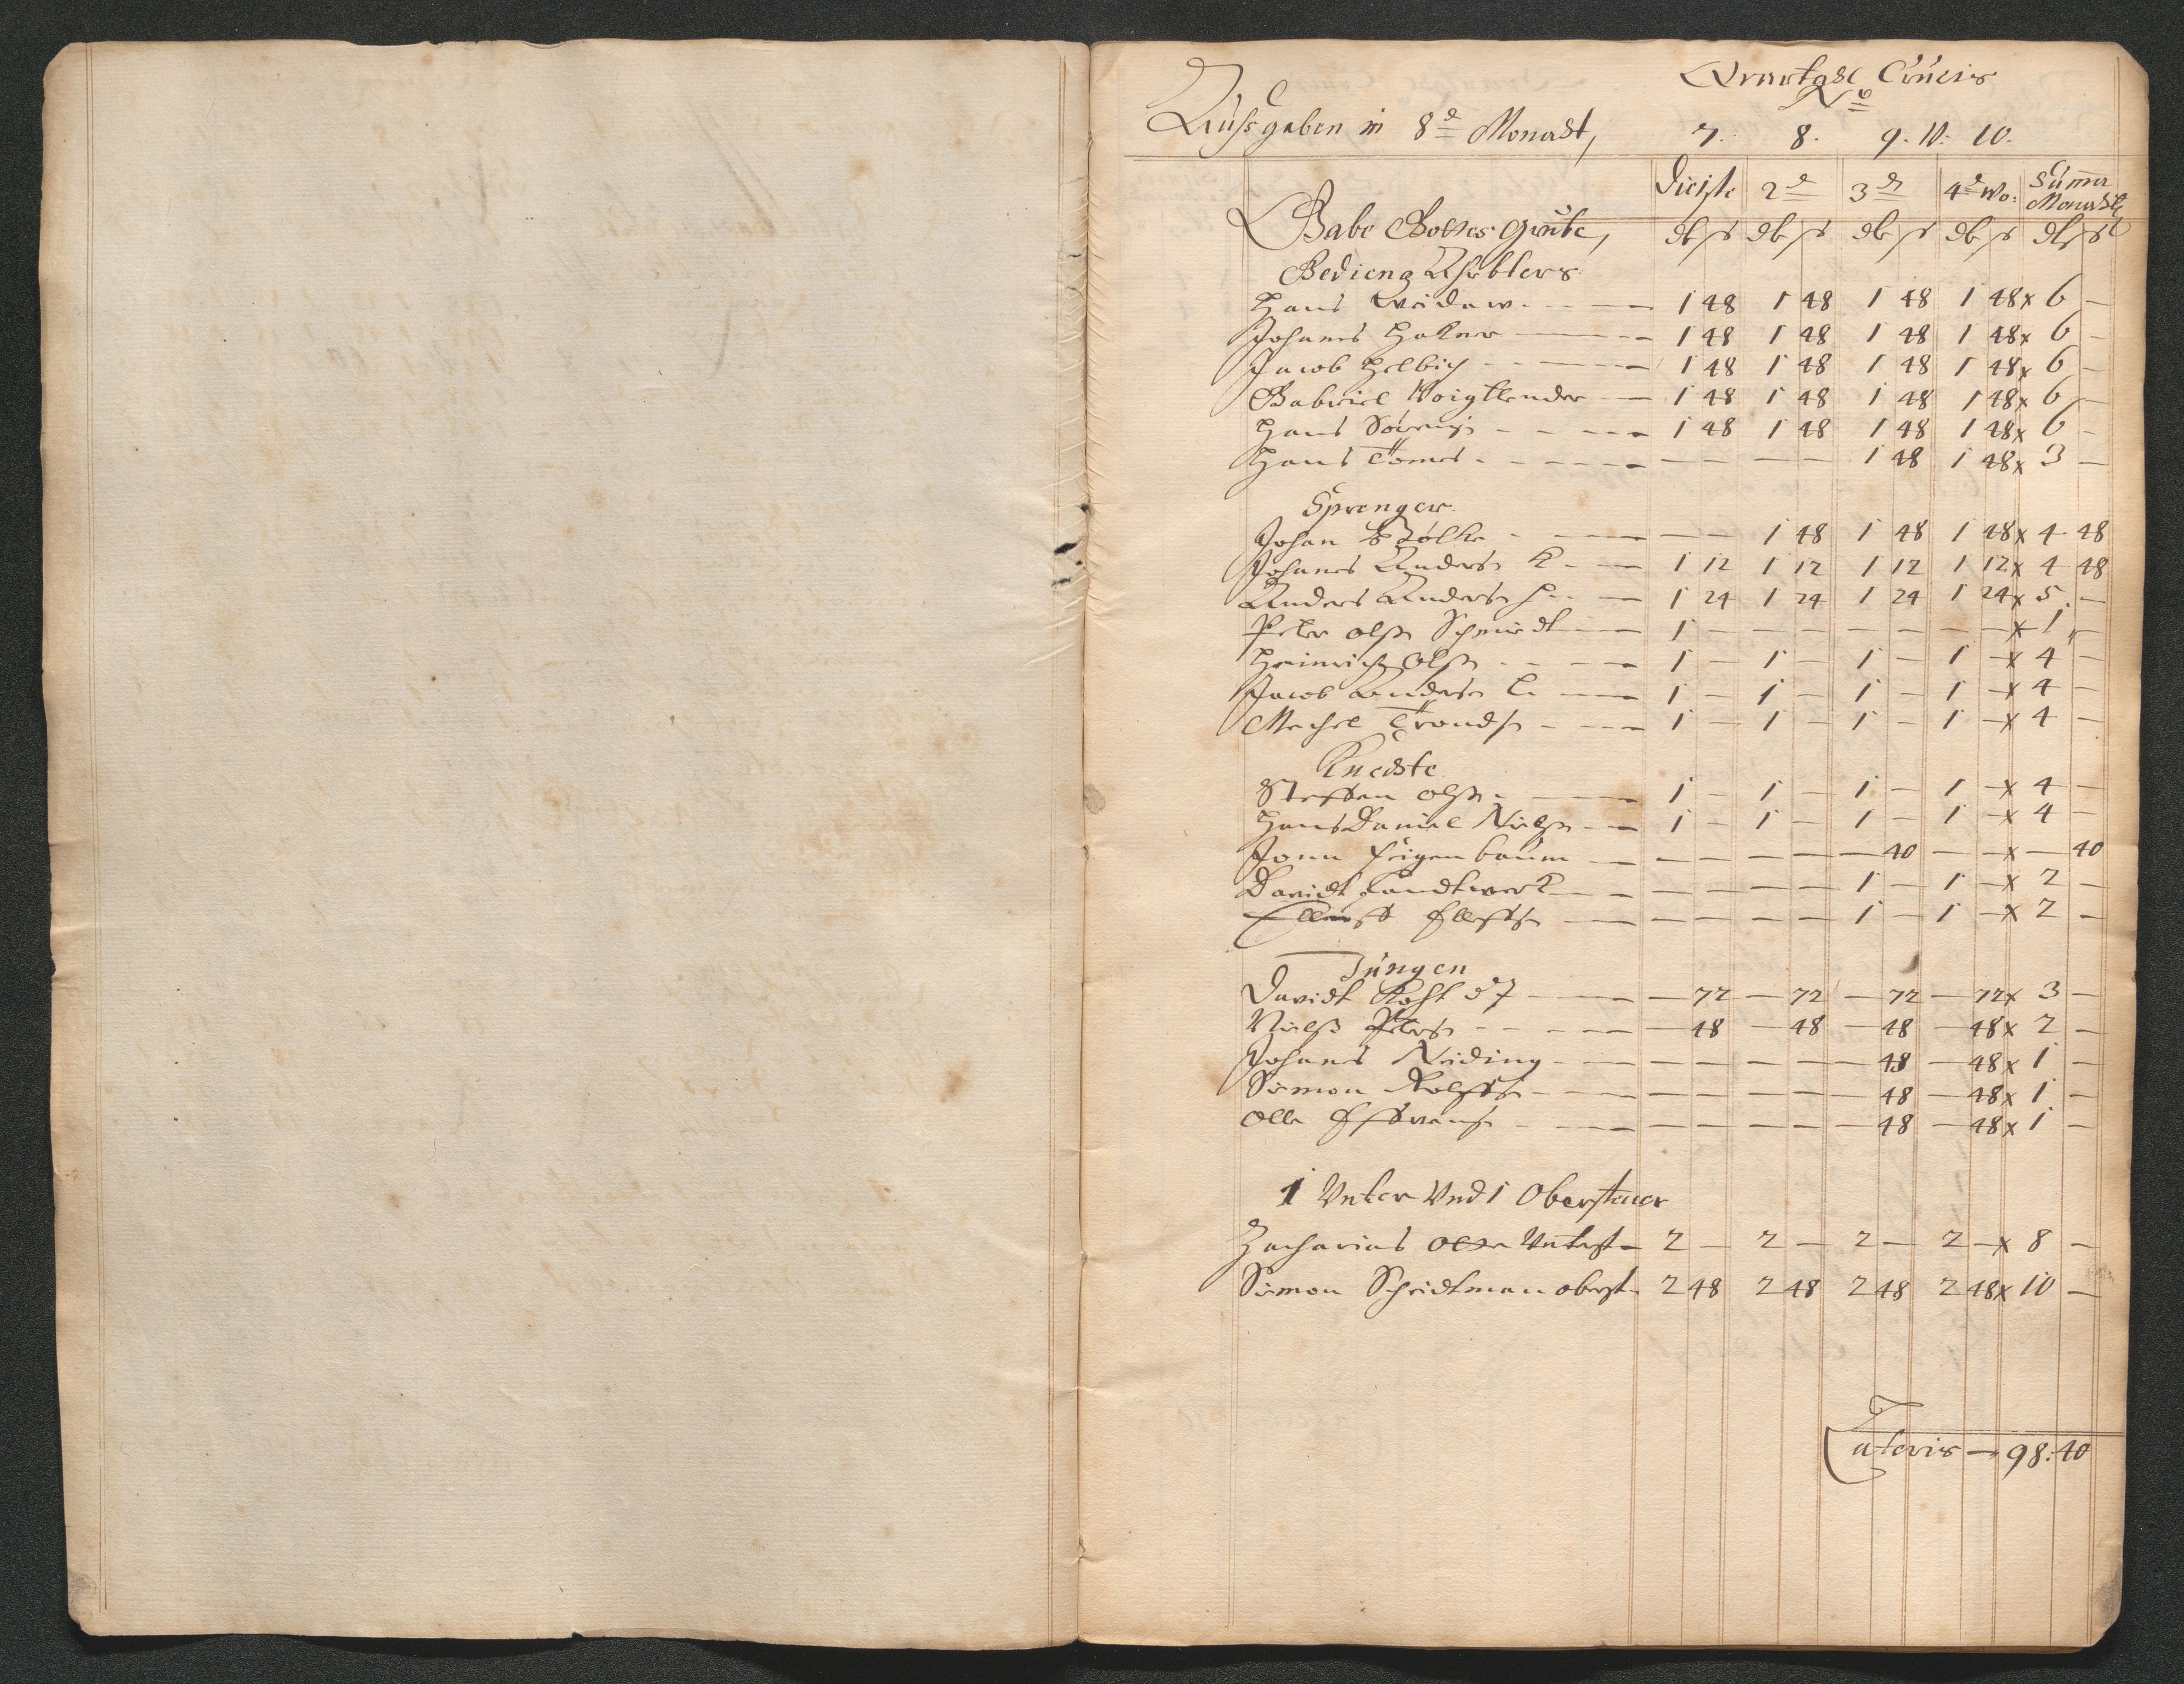 Quartahl Crucis
No
Ausgaben in 8te Monadt, 7. 8. 9. W: 10.
Diciste 2te 3te 4te Wo: Suma Monadtl
Gabe Gottes Grube, dl s dl s dl s dl s dl s
Beding Arbters
Hans Weidaw 1 48 1 48 1 48 1 48 x 6 —
Johanes Hakner 1 48 1 48 1 48 1 48 x 6 —
Jacob Helbich 1 48 1 48 1 48 1 48 x 6 —
Gabriel Voigtlender 1 48 1 48 1 48 1 48 x 6 —
Hans 1 48 1 48 1 48 1 48 x 6 —
Hans Tomes — — — — 1 48 1 48 x 3 —
Sprenger
Johan — — 1 48 1 48 1 48 x 4 48
Johanes Anders K 1 12 1 12 1 12 1 12 x 4 48
Anders Anders 1 24 1 24 1 24 1 24 x 5 —
Peter Olß Schmidt 1 — — — — — — — x 1 —
Heinrich Olß 1 — 1 — 1 — 1 — x 4 —
Jacob Anders L 1 — 1 — 1 — 1 — x 4 —
Mechel Tronds 1 — 1 — 1 — 1 — x 4 —
Knechte
Steffen Olß 1 — 1 — 1 — 1 — x 4 —
Hans Daniel Nielß 1 — 1 — 1 — 1 — x 4 —
Jonn Feigenbaum — — — — — 40 — — x — 40
Davidt Handtwerk — — — — 1 — 1 — x 2 —
Elleffs — — — — 1 — 1 — x 2 —
Jungen
Davidt Koht dJ — 72 — 72 — 72 — 72 x 3 —
Nielß Peters — 48 — 48 — 48 — 48 x 2 —
Johanes Neiding — — — — — 48 — 48 x 1 —
Simon Rolffs — — — — — 48 — 48 x 1 —
Olle — — — — — 48 — 48 x 1 —
1 Unter Und 1 Obersteuer
Zacharias Olße Unterst 2 — 2 — 2 — 2 — x 8 —
Simon Scheidtman oberst 2 48 2 48 2 48 2 48 x 10 —
Lateris — 98: 40